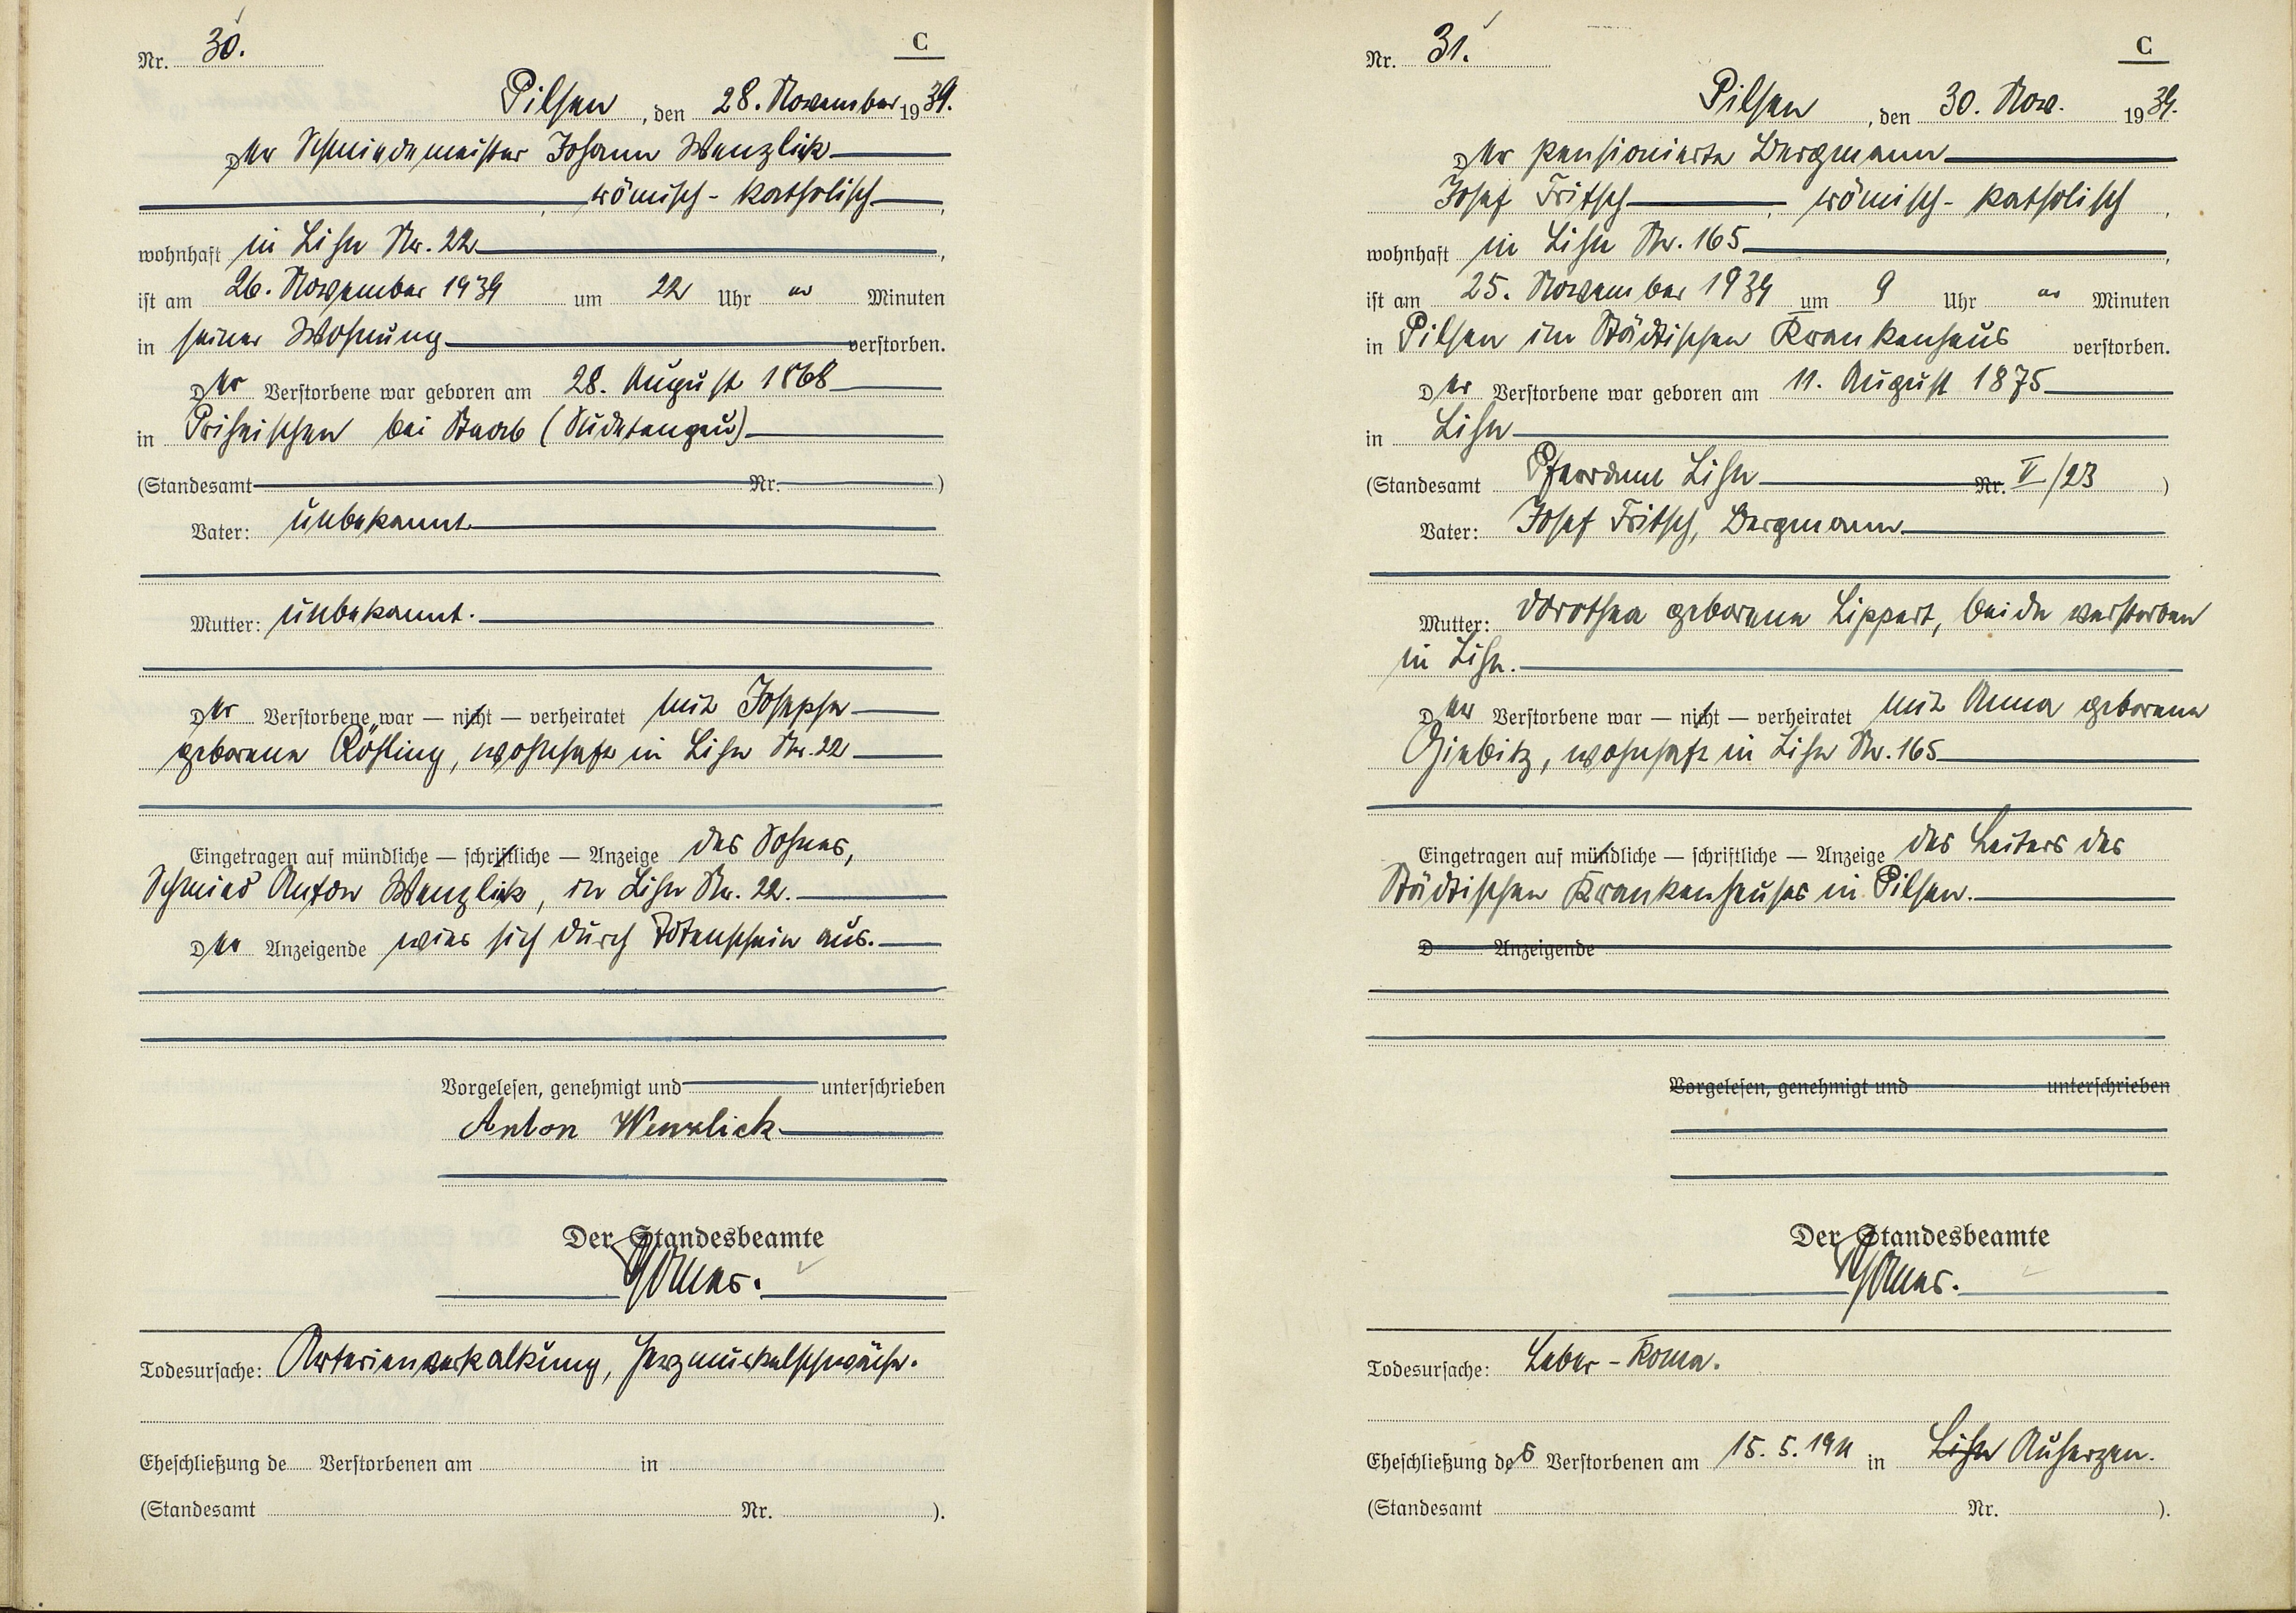 Nr. 30.
C
Pilsen, den 28. November 1939.
Der Schmiedemeister Johann Wenzlick
, römisch-katholisch,
wohnhaft in Lihn Nr. 22,
ist am 26. November 1939 um 22 Uhr Minuten
in seiner Wohnung verstorben.
Der Verstorbene war geboren am 28. August 1868
in bei Staab (Sudetengau)
(Standesamt Nr. )
Vater: unbekannt
Mutter: unbekannt.
Der Verstorbene war — nicht — verheiratet mit Josepha
geborene Rößling, wohnhaft in Lihn Nr. 22
Eingetragen auf mündliche — schriftliche — Anzeige des Sohnes,
Schmied Anton Wenzlick, in Lihn Nr. 22.
Der Anzeigende wies sich durch Totenschein aus.
Vorgelesen, genehmigt und unterschrieben
Anton Wenzlick
Der Standesbeamte
Todesursache: Arterienverkalkung, Herzmuskelschwäche.
Eheschließung de Verstorbenen am in
(Standesamt Nr. ).
Nr. 31.
C
Pilsen, den 30. Nov. 1939.
Der pensionierte Bergmann
Josef Fritsch, römisch-katholisch,
wohnhaft in Lihn Nr. 165,
ist am 25. November 1939 um 9 Uhr Minuten
in Pilsen im Städtischen Krankenhaus verstorben.
Der Verstorbene war geboren am 11. August 1875
in Lihn
(Standesamt Pfarramt Lihn Nr. V/23 )
Vater: Josef Fritsch, Bergmann
Mutter: Dorothea geborene Lippert, beide verstorben
in Lihn.
Der Verstorbene war — nicht — verheiratet mit Anna geborene
Giebitz, wohnhaft in Lihn Nr. 165
Eingetragen auf mündliche — schriftliche — Anzeige des Leiters des
Städtischen Krankenhauses in Pilsen.
D Anzeigende
Vorgelesen, genehmigt und unterschrieben
Der Standesbeamte
Todesursache: Leber-Koma.
Eheschließung des Verstorbenen am 15. 5. 1911 in Lihn Auherzen.
(Standesamt Nr. ).